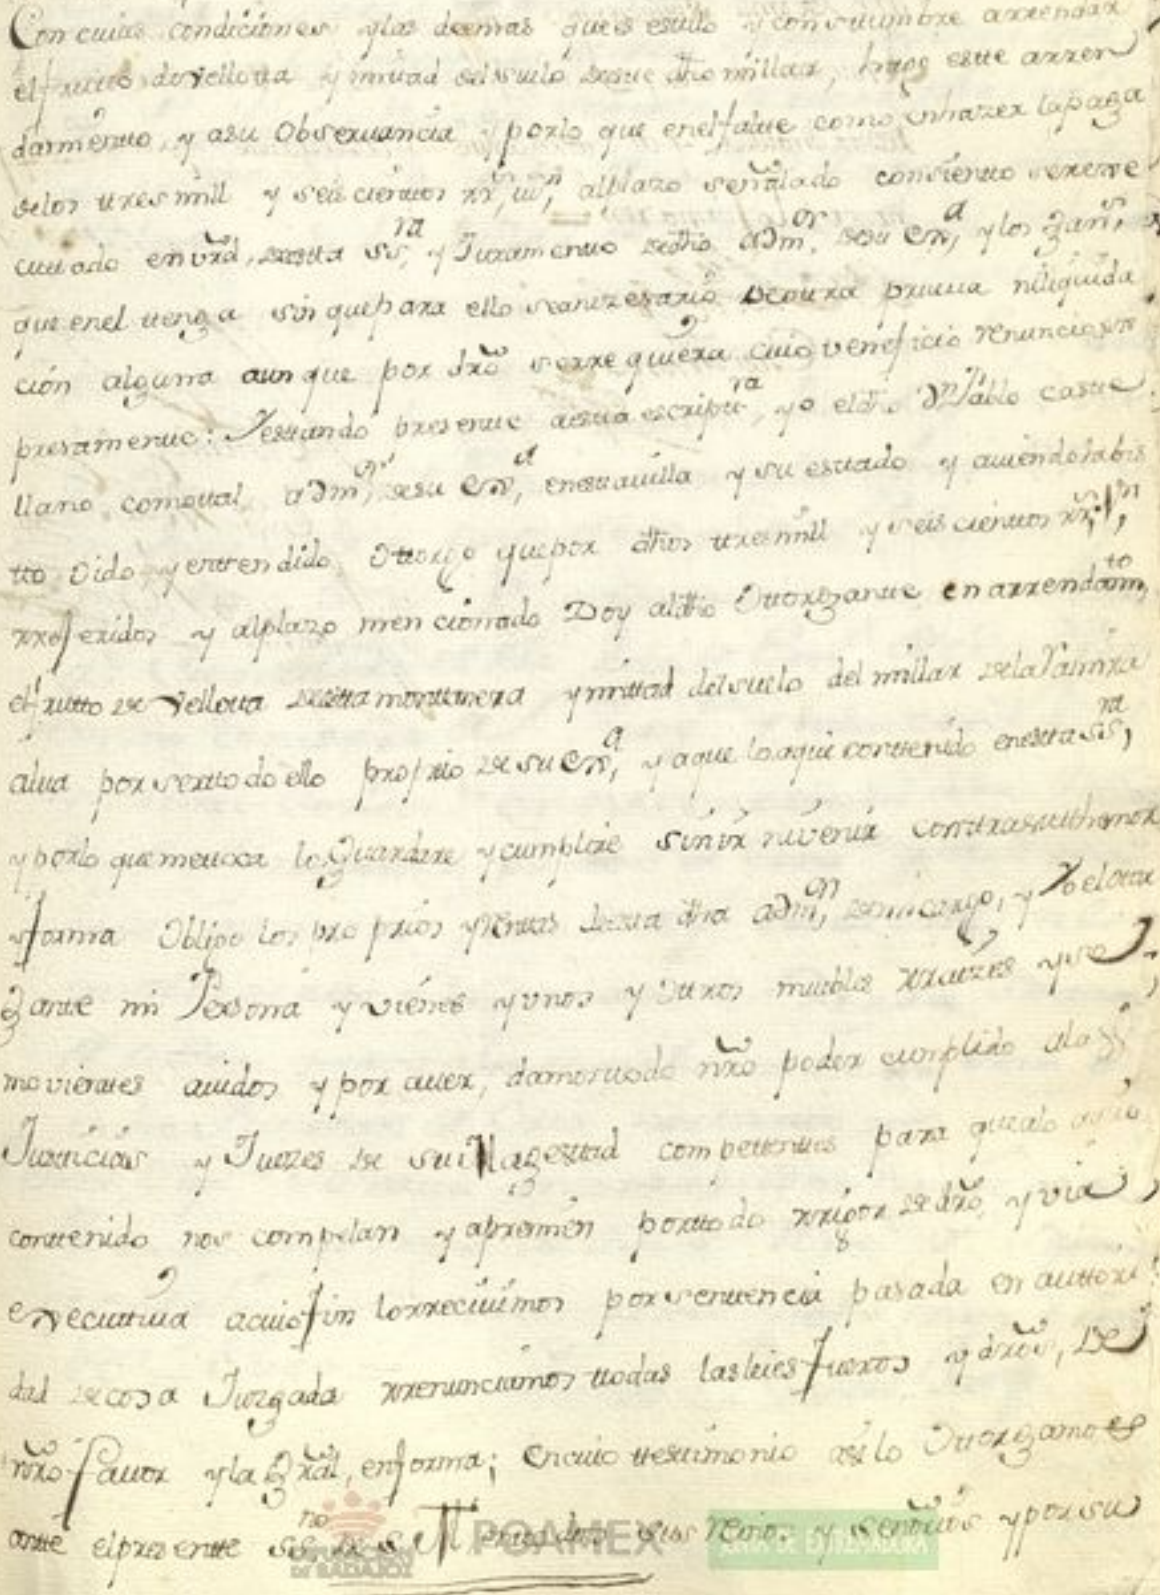 Con cuias condiciones y las demas que es estilo y constumbre arrendar
el frutto de vellotta y mitad del suelo deste dho millar, hago este arren
damiento, y a su Observancia y por lo que en el falte como en hazer la paga
de los tres mill y seiscientos rrs, vn, al plazo señalado consiento se exe
cuttado en vrd, desta ss,ra y Juramento de dho adm,or de su Exa, y los gans,
que en el tenga sin que para ello sea nezesario de otra prueua ni liquida
ción alguna aunque por dro se rrequiera cuio veneficio renuncio ex
presamente: Y estando presente a esta escriptra, yo el dho Dn Pablo Caste
llano como tal adm,or de su Exa, en esta villa y su estado y auiendo la vis
tto Oido y enttendido Ottorgo que por dhos tres mill y seiscientos rrs, vn,
rreferidos y al plazo mencionado Doy al dho Ottorgante en arrendam,to
el frutto de Vellotta desta montanera y mittad del suelo del millar de la
alua por ser todo ello proprio de su Exa, y a que lo aqui contenido en esta ss,ra
y por lo que me ttoca lo Guardare y cumplire sin ir ni venir contra su thenor
y forma Obligo los proprios y Renttas desta dha adm,on de mi cargo, y Yo el ottor
gante mi Persona y vienes y unos y Ottros muebles rraizes y se
movientes auidos y por auer, damos todo nro poder cumplido a las
Justicias y Juezes de su Magestad competentes para que a lo aqui
contenido nos compelan y apremien por ttodo rrigor de dro, y via
executtiua a cuio fin lo rreciuimos por sentencia pasada en auttori
dad de cosa Juzgada rrenunciamos ttodas las leies fueros y dros, de
nro fauor y la Gral, en forma; En cuio testimonio asi lo Ottorgamos
ante el presente ss,no de S M en ttodos sus Reinos y señorios y por su
DIPUTACIÓN
DE BADAJOZ
POAMEX
JUNTA DE EXTREMADURA